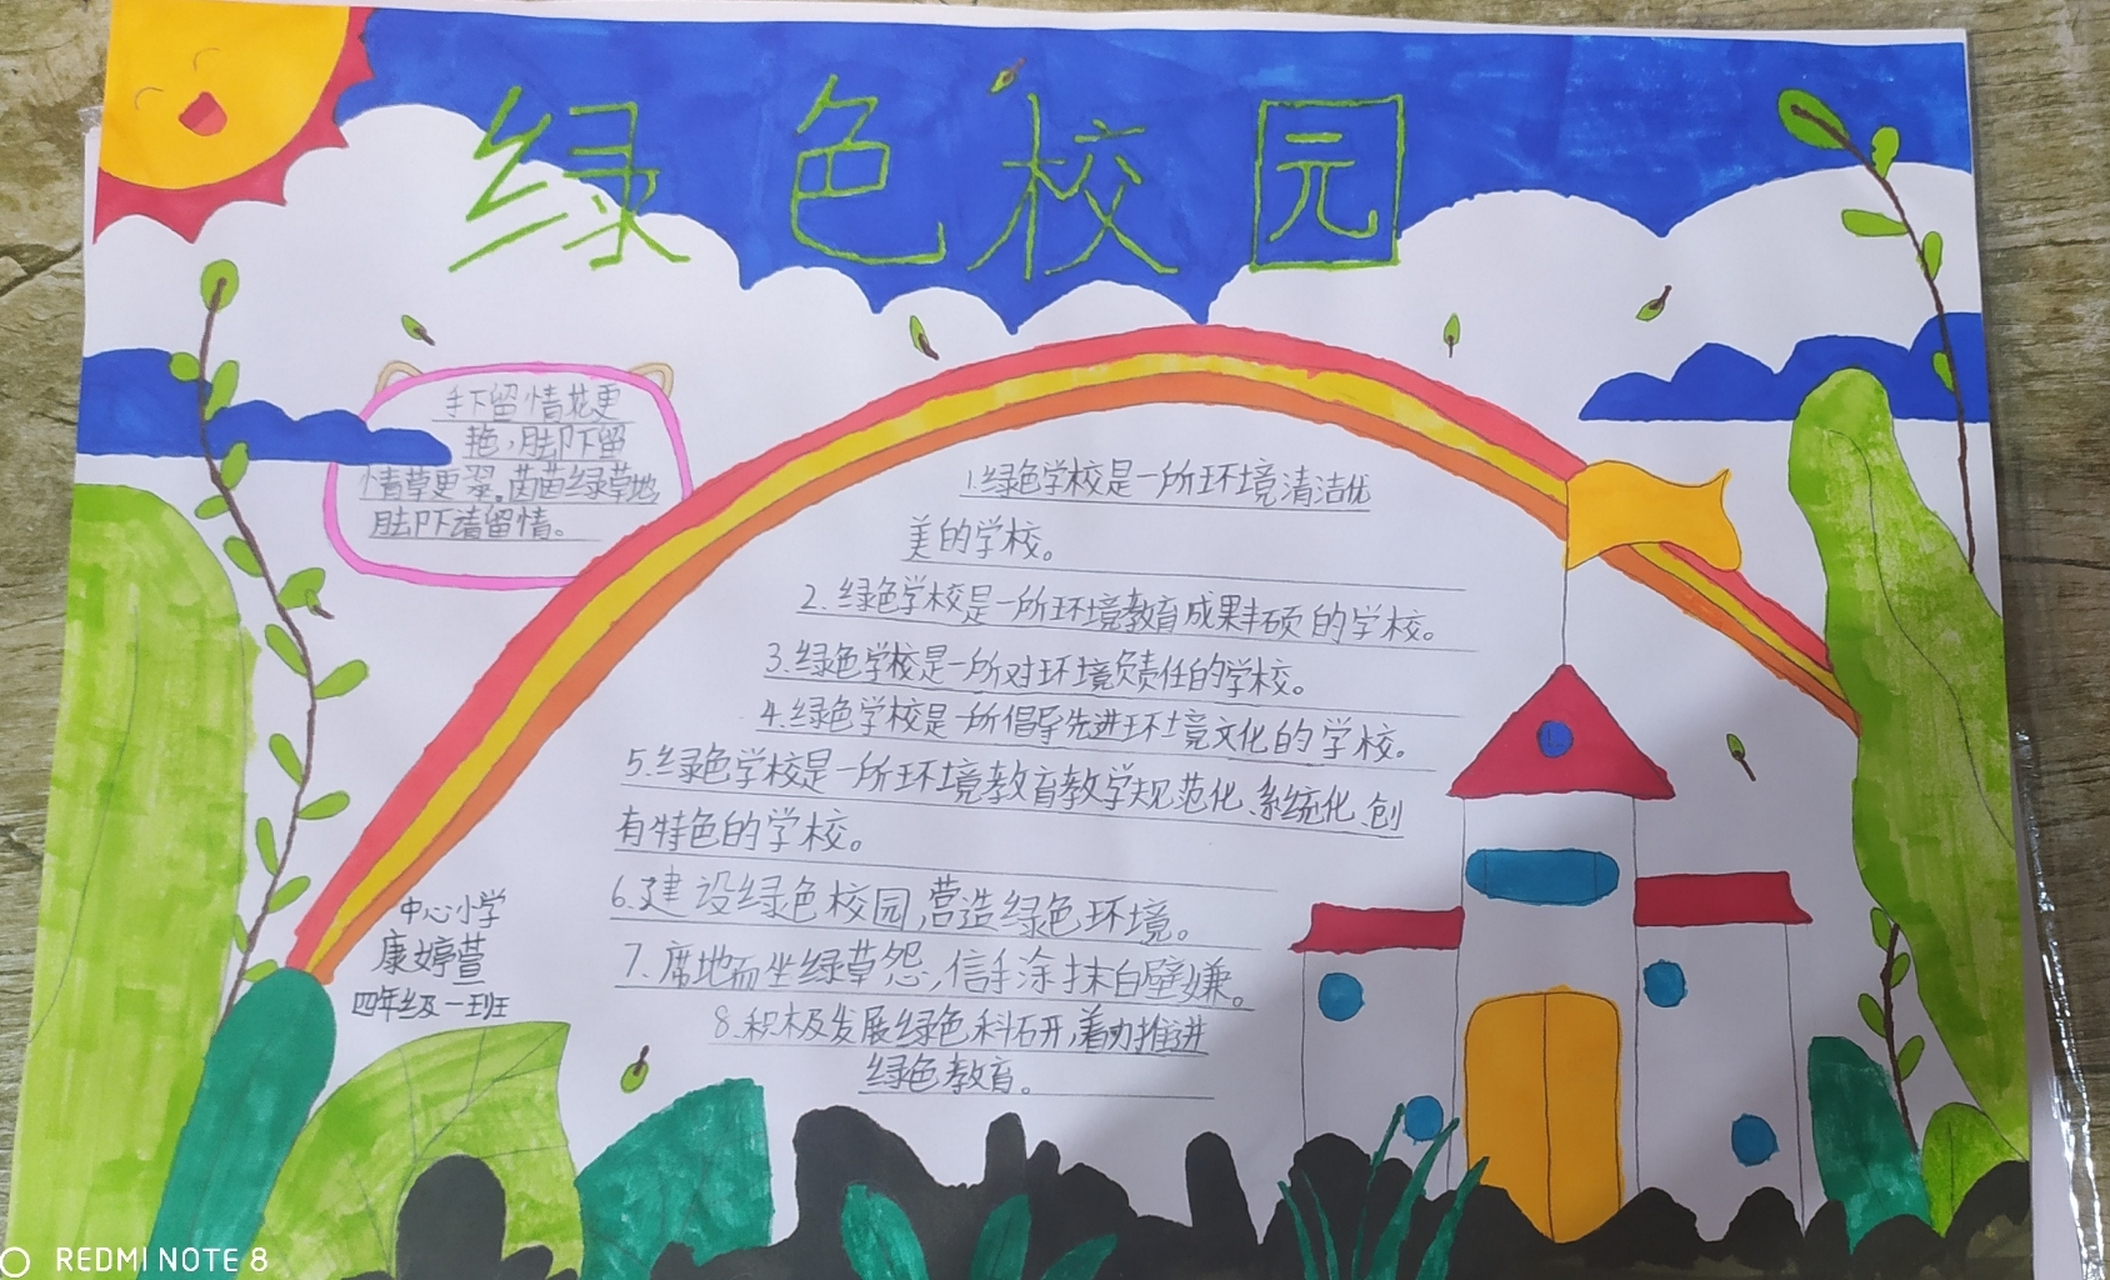 绿色校园
手下留情花更
艳,脚下留
情草更翠。茵茵绿草地
脚下请留情。
1.绿色学校是一所环境清洁优
美的学校。
2.绿色学校是一所环境教育成果丰硕的学校。
3.绿色学校是一所对环境负责任的学校。
4.绿色学校是一所倡导先进环境文化的学校。
5.绿色学校是一所环境教育教学规范化、系统化、创
有特色的学校。
6.建设绿色校园,营造绿色环境。
7.席地而坐绿草怨,信手涂抹白壁嫌。
8.积极发展绿色科研,着力推进
绿色教育。
中心小学
康婷萱
四年级一班
REDMI NOTE 8